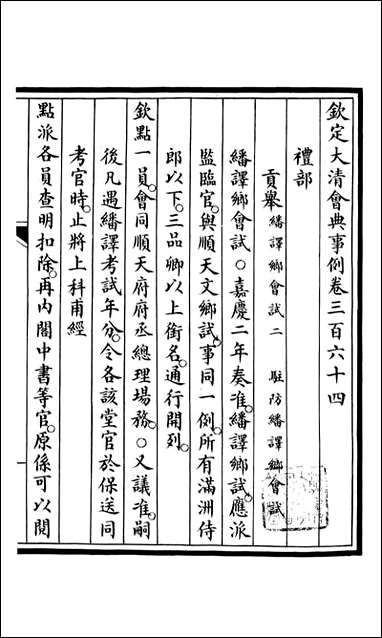 欽定大清會典事例卷三百六十四
禮部
貢舉 繙譯鄉會試二 駐防繙譯鄉會試
繙譯鄉會試○嘉慶二年奏准繙譯鄉試應派
監臨官與順天文鄉試事同一例所有滿洲侍
郎以下三品卿以上銜名通行開列
欽點一員會同順天府府丞總理場務○又議准嗣
後凡遇繙譯考試年分令各該堂官於保送同
考官時止將上科甫經
點派各員查明扣除再內閣中書等官原係可以閱